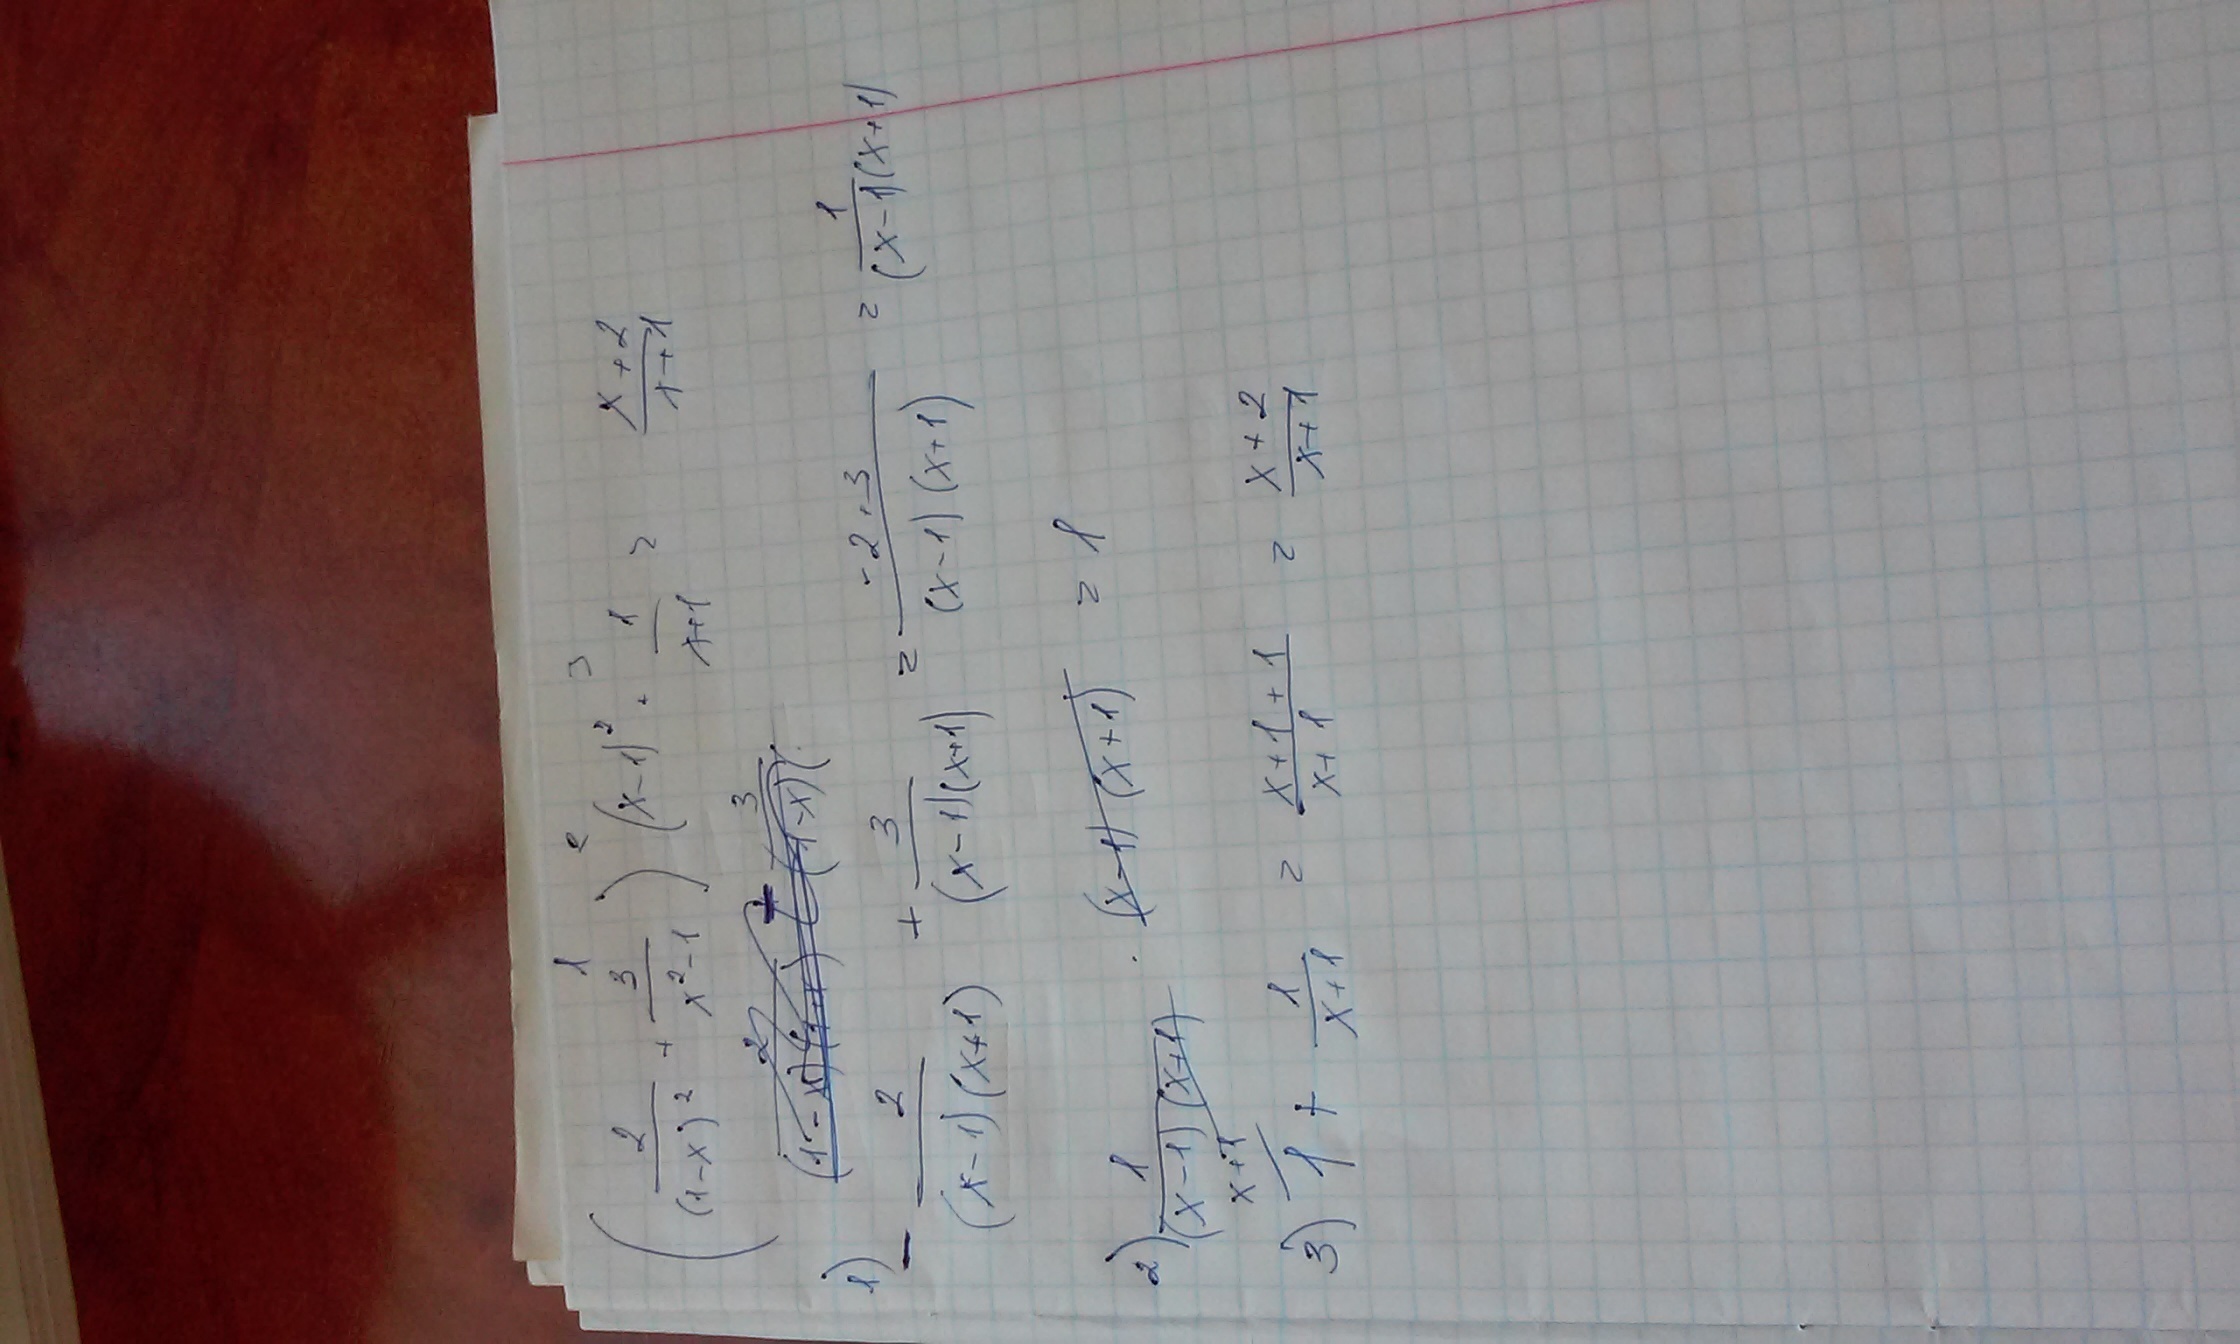 1 2 3
( 2/(1-x)² + 3/(x²-1) ) (x-1)² · 1/(x+1) = (x+2)/(x+1)
1) - 2/((x-1)(x+1)) + 3/((x-1)(x+1)) = (-2+3)/((x-1)(x+1)) = 1/((x-1)(x+1))
2) 1/((x-1)(x+1)) · (x-1)(x+1) = 1
3) x+1/1 + 1/(x+1) = (x+1+1)/(x+1) = (x+2)/(x+1)